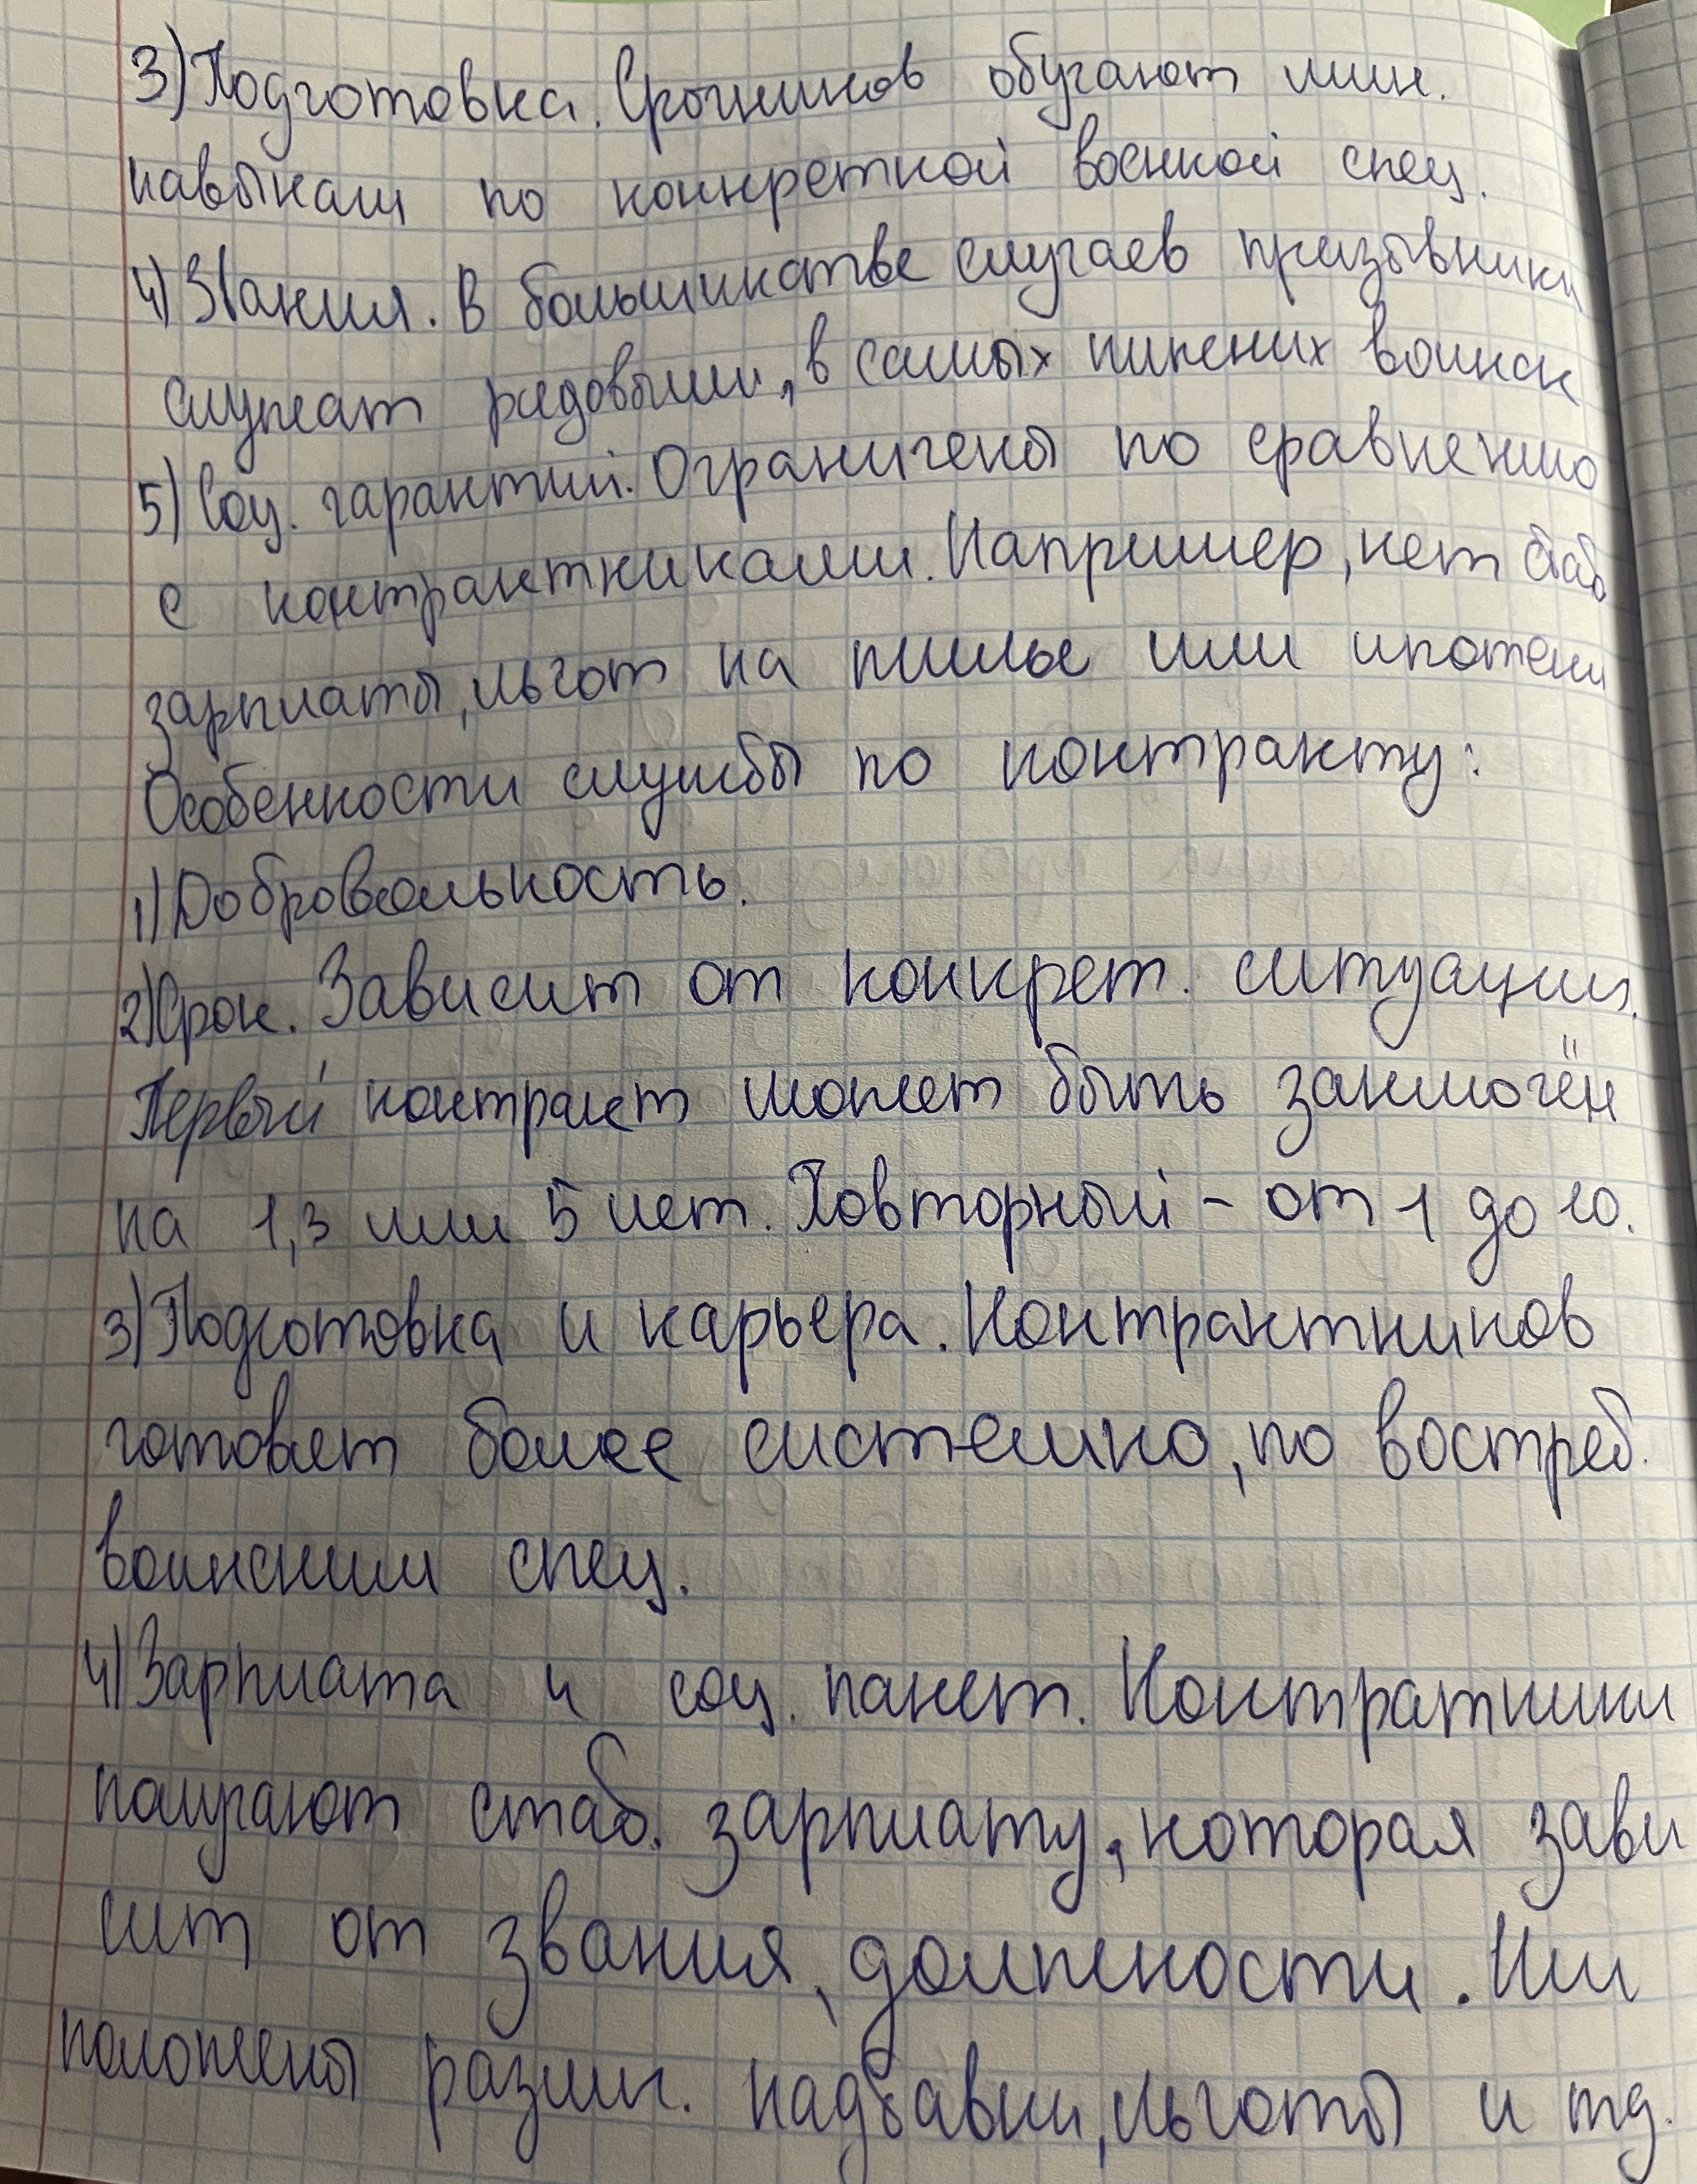 3) Подготовка. Срочников обучают мин.
навыкам по конкретной военной спец.
4) Звания. В большинстве случаев призывники
служат рядовыми, в самых нижних воинск
5) Соц. гарантий. Ограничены по сравнению
с контрактниками. Например, нет стаб
зарплаты, льгот на жилье или ипотеки
Особенности службы по контракту:
1) Добровольность.
2) Срок. Зависит от конкрет. ситуации.
Первый контракт может быть заключён
на 1, 3 или 5 лет. Повторный - от 1 до 10.
3) Подготовка и карьера. Контрактников
готовят более системно, по востреб.
воинским спец.
4) Зарплата и соц. пакет. Контратники
получают стаб. зарплату, которая зави
сит от звания, должности. Им
положены различ. надбавки, льготы и тд.